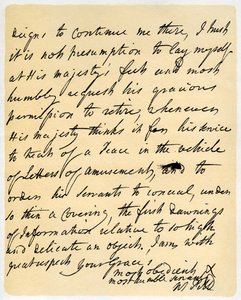 deigns to continue me there, I trust
it is not presumption to lay myself
at His majesty's feet and most
humbly request his gracious
permission to retire, whenever
His majesty thinks it for his service
to treat of a Peace in the vehicle
of Letters of amusement, and to
order his servants to conceal, under
so thin a Covering, the first Dawnings
of Information relative to so high
and delicate an object. I am with
great respect Your Grace's
most obedient &
most humble servant